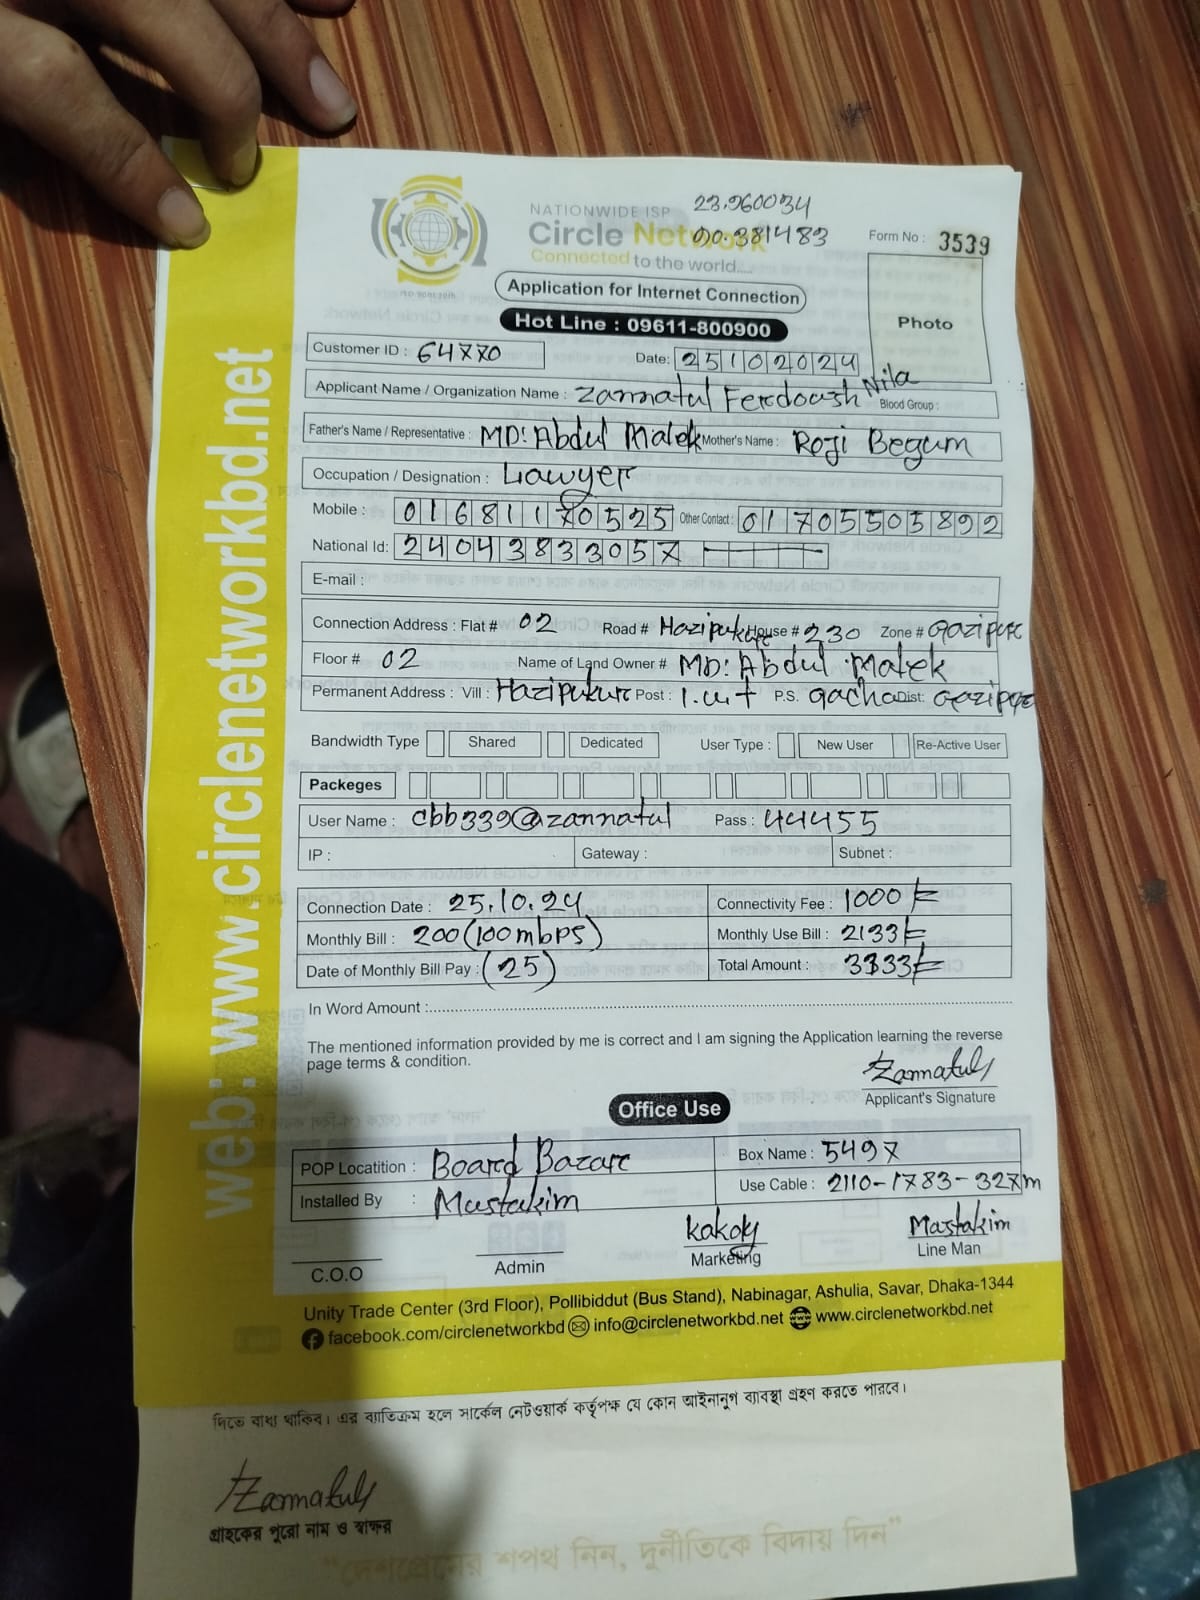 23.960034
NATIONWIDE ISP
Circle Network 90.381483
Connected to the world....
Form No : 3539
ISO 9001:2015
Application for Internet Connection
Photo
Hot Line : 09611-800900
Customer ID : 64770
Date: 25102024
Applicant Name / Organization Name : Zannatul Ferdoush Nila Blood Group :
Father's Name / Representative : MD: Abdul Malek Mother's Name : Roji Begum
Occupation / Designation : Lawyer
Mobile : 01681170525 Other Contact : 01705505892
National Id: 2404383057
E-mail :
Connection Address : Flat # 02 Road # Hazipukur House # 230 Zone # Gazipur
Floor # 02 Name of Land Owner # MD: Abdul Malek
Permanent Address : Vill : Hazipukur Post : I.u.t P.S. gacha Dist: Gazipur
Bandwidth Type Shared Dedicated User Type : New User Re-Active User
Packeges
User Name : cbb339@zannatul Pass : 44455
IP : Gateway : Subnet :
Connection Date : 25.10.24 Connectivity Fee : 1000/=
Monthly Bill : 200(100mbps) Monthly Use Bill : 2133/=
Date of Monthly Bill Pay : (25) Total Amount : 3333/=
In Word Amount :
The mentioned information provided by me is correct and I am signing the Application learning the reverse
page terms & condition.
Zannatul
Applicant's Signature
Office Use
POP Locatition : Board Bazar Box Name : 5497
Installed By : Mustakim Use Cable : 2110-1783-327m
Kakoly Mastakim
C.O.O Admin Marketing Line Man
Unity Trade Center (3rd Floor), Pollibiddut (Bus Stand), Nabinagar, Ashulia, Savar, Dhaka-1344
facebook.com/circlenetworkbd info@circlenetworkbd.net www.circlenetworkbd.net
web: www.circlenetworkbd.net
দিতে বাধ্য থাকিব। এর ব্যতিক্রম হলে সার্কেল নেটওয়ার্ক কর্তৃপক্ষ যে কোন আইনানুগ ব্যবস্থা গ্রহণ করতে পারবে।
Zannatul
গ্রাহকের পুরো নাম ও স্বাক্ষর
“দেশপ্রেমের শপথ নিন, দুর্নীতিকে বিদায় দিন”